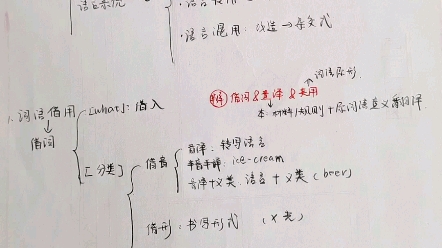 语言系统
·语言
·语言混用：改造→杂交式
词语原形
辨析 借词&意译&
本：材料/规则+原词语直义再翻译
1. 词语借用
[what]：借入
借词
[分类]
借音
音译：转写语言
半音半译：ice-cream
音译+义类：语言+义类（beer）
借形：书写形式